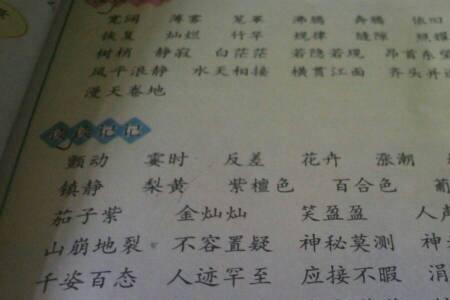 宽阔 薄雾 笼罩 沸腾 奔腾 依旧
恢复 灿烂 竹竿 规律 缝隙 照耀
树梢 静寂 白茫茫 若隐若现 昂首东望
风平浪静 水天相接 横贯江面 齐头并
漫天卷地
颤动 霎时 反差 花卉 涨潮
镇静 梨黄 紫檀色 百合色 葡
茄子紫 金灿灿 笑盈盈 人声
山崩地裂 不容置疑 神秘莫测 神
千姿百态 人迹罕至 应接不暇 涓